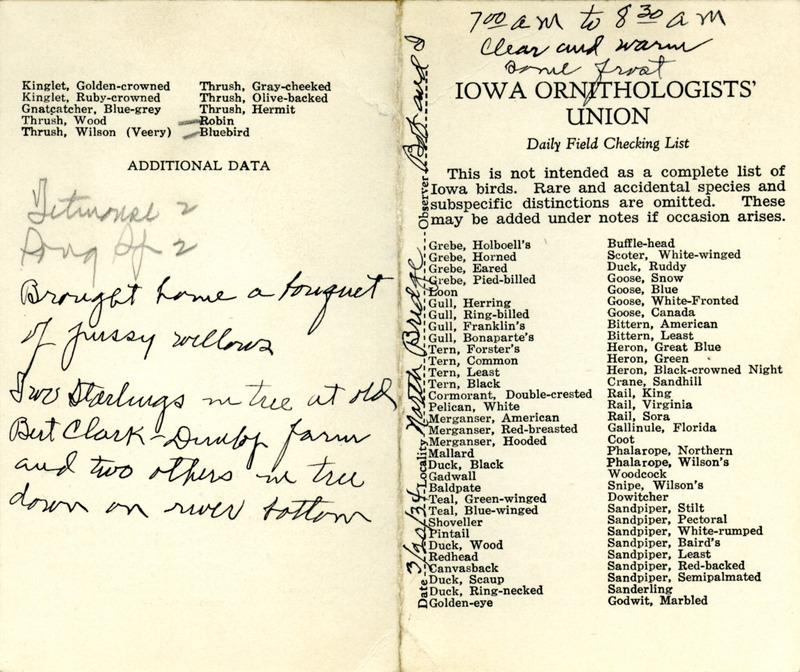 Kinglet, Golden-crowned
Kinglet, Ruby-crowned
Gnatcatcher, Blue-grey
Thrush, Wood
Thrush, Wilson (Veery)
Thrush, Gray-cheeked
Thrush, Olive-backed
Thrush, Hermit
Robin
Bluebird
ADDITIONAL DATA
Titmouse 2
Song Sp 2
Brought home a bouquet
of pussy willows
Two Starlings in tree at old
Bert Clark-Dunlop farm
and two others in tree
down on river bottom
Date 3/20/34 Locality North Bridge Observer Bert and I
7 00 a m to 8 30 a m
Clear and warm
Some frost
IOWA ORNITHOLOGISTS'
UNION
Daily Field Checking List
This is not intended as a complete list of
Iowa birds. Rare and accidental species and
subspecific distinctions are omitted. These
may be added under notes if occasion arises.
Grebe, Holboell's
Grebe, Horned
Grebe, Eared
Grebe, Pied-billed
Loon
Gull, Herring
Gull, Ring-billed
Gull, Franklin's
Gull, Bonaparte's
Tern, Forster's
Tern, Common
Tern, Least
Tern, Black
Cormorant, Double-crested
Pelican, White
Merganser, American
Merganser, Red-breasted
Merganser, Hooded
Mallard
Duck, Black
Gadwall
Baldpate
Teal, Green-winged
Teal, Blue-winged
Shoveller
Pintail
Duck, Wood
Redhead
Canvasback
Duck, Scaup
Duck, Ring-necked
Golden-eye
Buffle-head
Scoter, White-winged
Duck, Ruddy
Goose, Snow
Goose, Blue
Goose, White-Fronted
Goose, Canada
Bittern, American
Bittern, Least
Heron, Great Blue
Heron, Green
Heron, Black-crowned Night
Crane, Sandhill
Rail, King
Rail, Virginia
Rail, Sora
Gallinule, Florida
Coot
Phalarope, Northern
Phalarope, Wilson's
Woodcock
Snipe, Wilson's
Dowitcher
Sandpiper, Stilt
Sandpiper, Pectoral
Sandpiper, White-rumped
Sandpiper, Baird's
Sandpiper, Least
Sandpiper, Red-backed
Sandpiper, Semipalmated
Sanderling
Godwit, Marbled